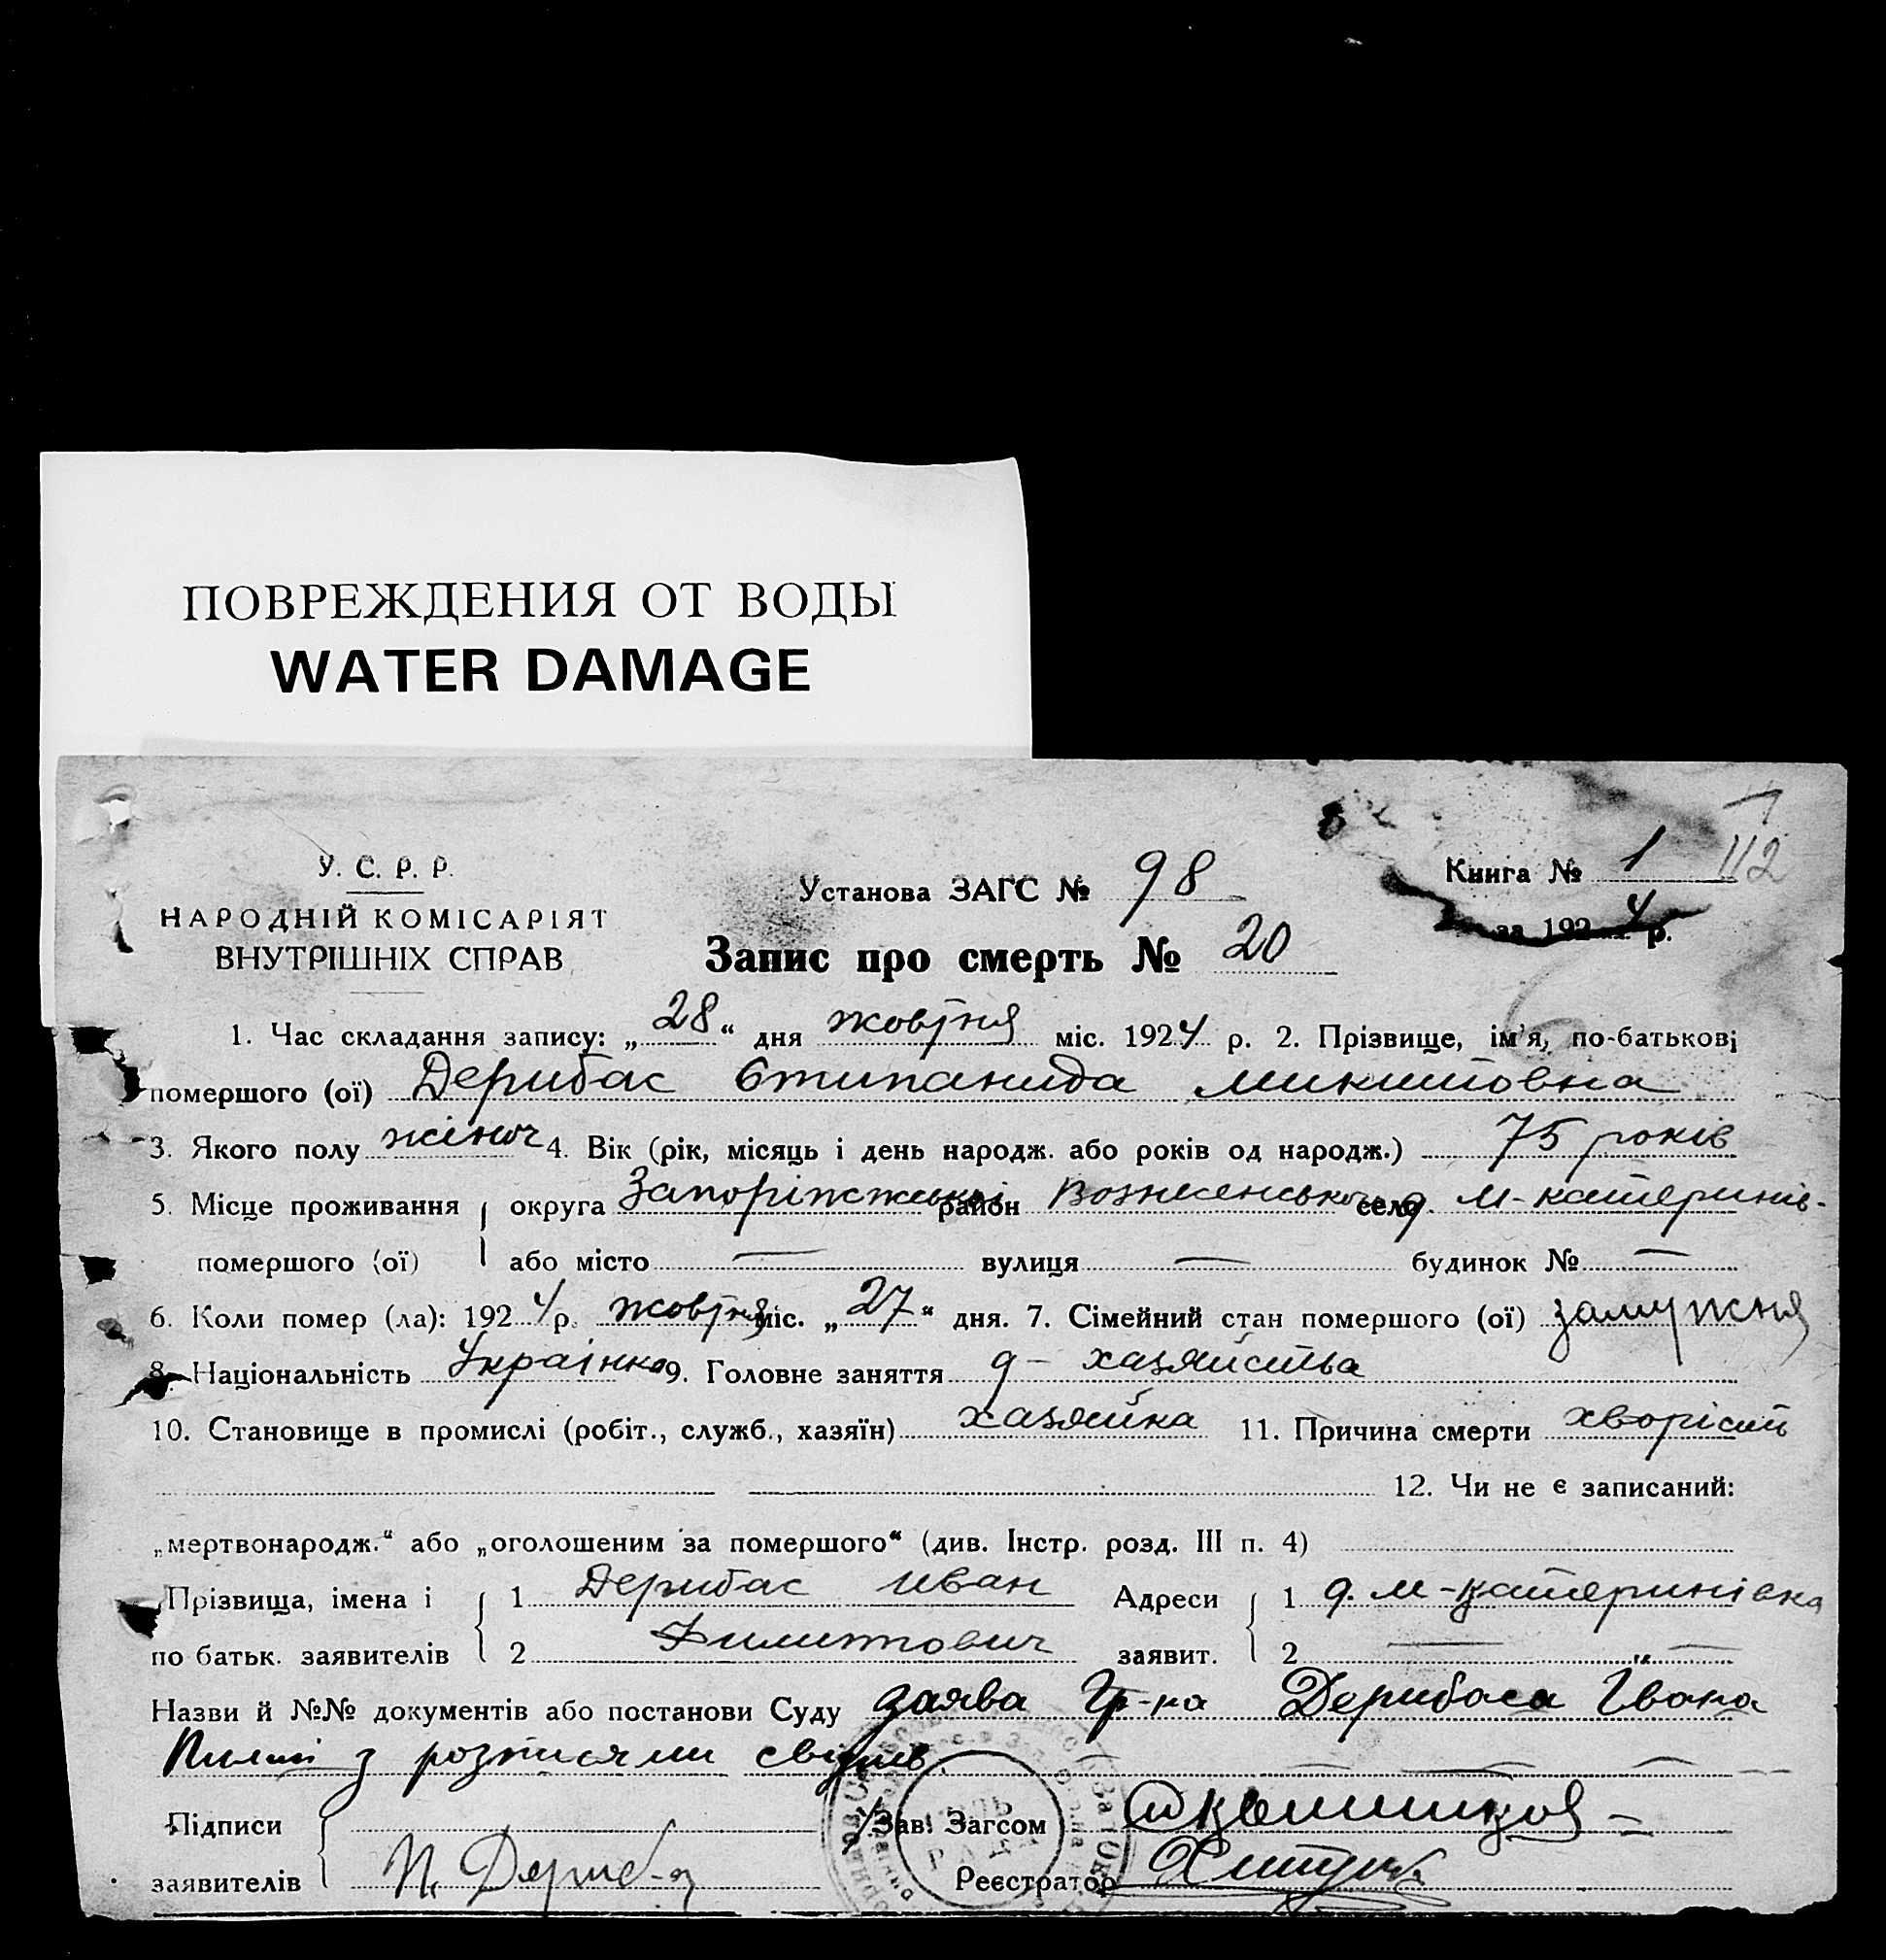 ПОВРЕЖДЕНИЯ ОТ ВОДЫ
WATER DAMAGE
112
У. С. Р. Р.
НАРОДНІЙ КОМІСАРІЯТ
ВНУТРІШНІХ СПРАВ
Установа ЗАГС № 98
Книга № 1
за 1924 р.
Запис про смерть № 20
1. Час складання запису: „28“ дня жовтня міс. 1924 р. 2. Прізвище, ім'я, по-батькові
помершого (ої) Дерибас Степанида Микитовна
3. Якого полу жіноч 4. Вік (рік, місяць і день народж. або років од народж.) 75 років
5. Місце проживання округа Запоріжської район Вознесенського село д. М-катеринів-
помершого (ої) або місто — вулиця — будинок № —
6. Коли помер (ла): 1924 р. жовтня міс. „27“ дня. 7. Сімейний стан помершого (ої) замужня
8. Національність Українка 9. Головне заняття д- хазяйства
10. Становище в промислі (робіт., служб., хазяїн) хазяйка 11. Причина смерти хворість
12. Чи не є записаний:
„мертвонародж.“ або „оголошеним за помершого“ (див. Інстр. розд. III п. 4)
Прізвища, імена і 1 Дерибас Иван Адреси 1 д. М-катеринівка
по батьк. заявителів 2 Филиппович заявит. 2 — —
Назви й №№ документів або постанови Суду заява Гр-на Дерибаса Івана
з розписями свідків
Підписи Зав. Загсом
заявителів Дериба Реєстратор